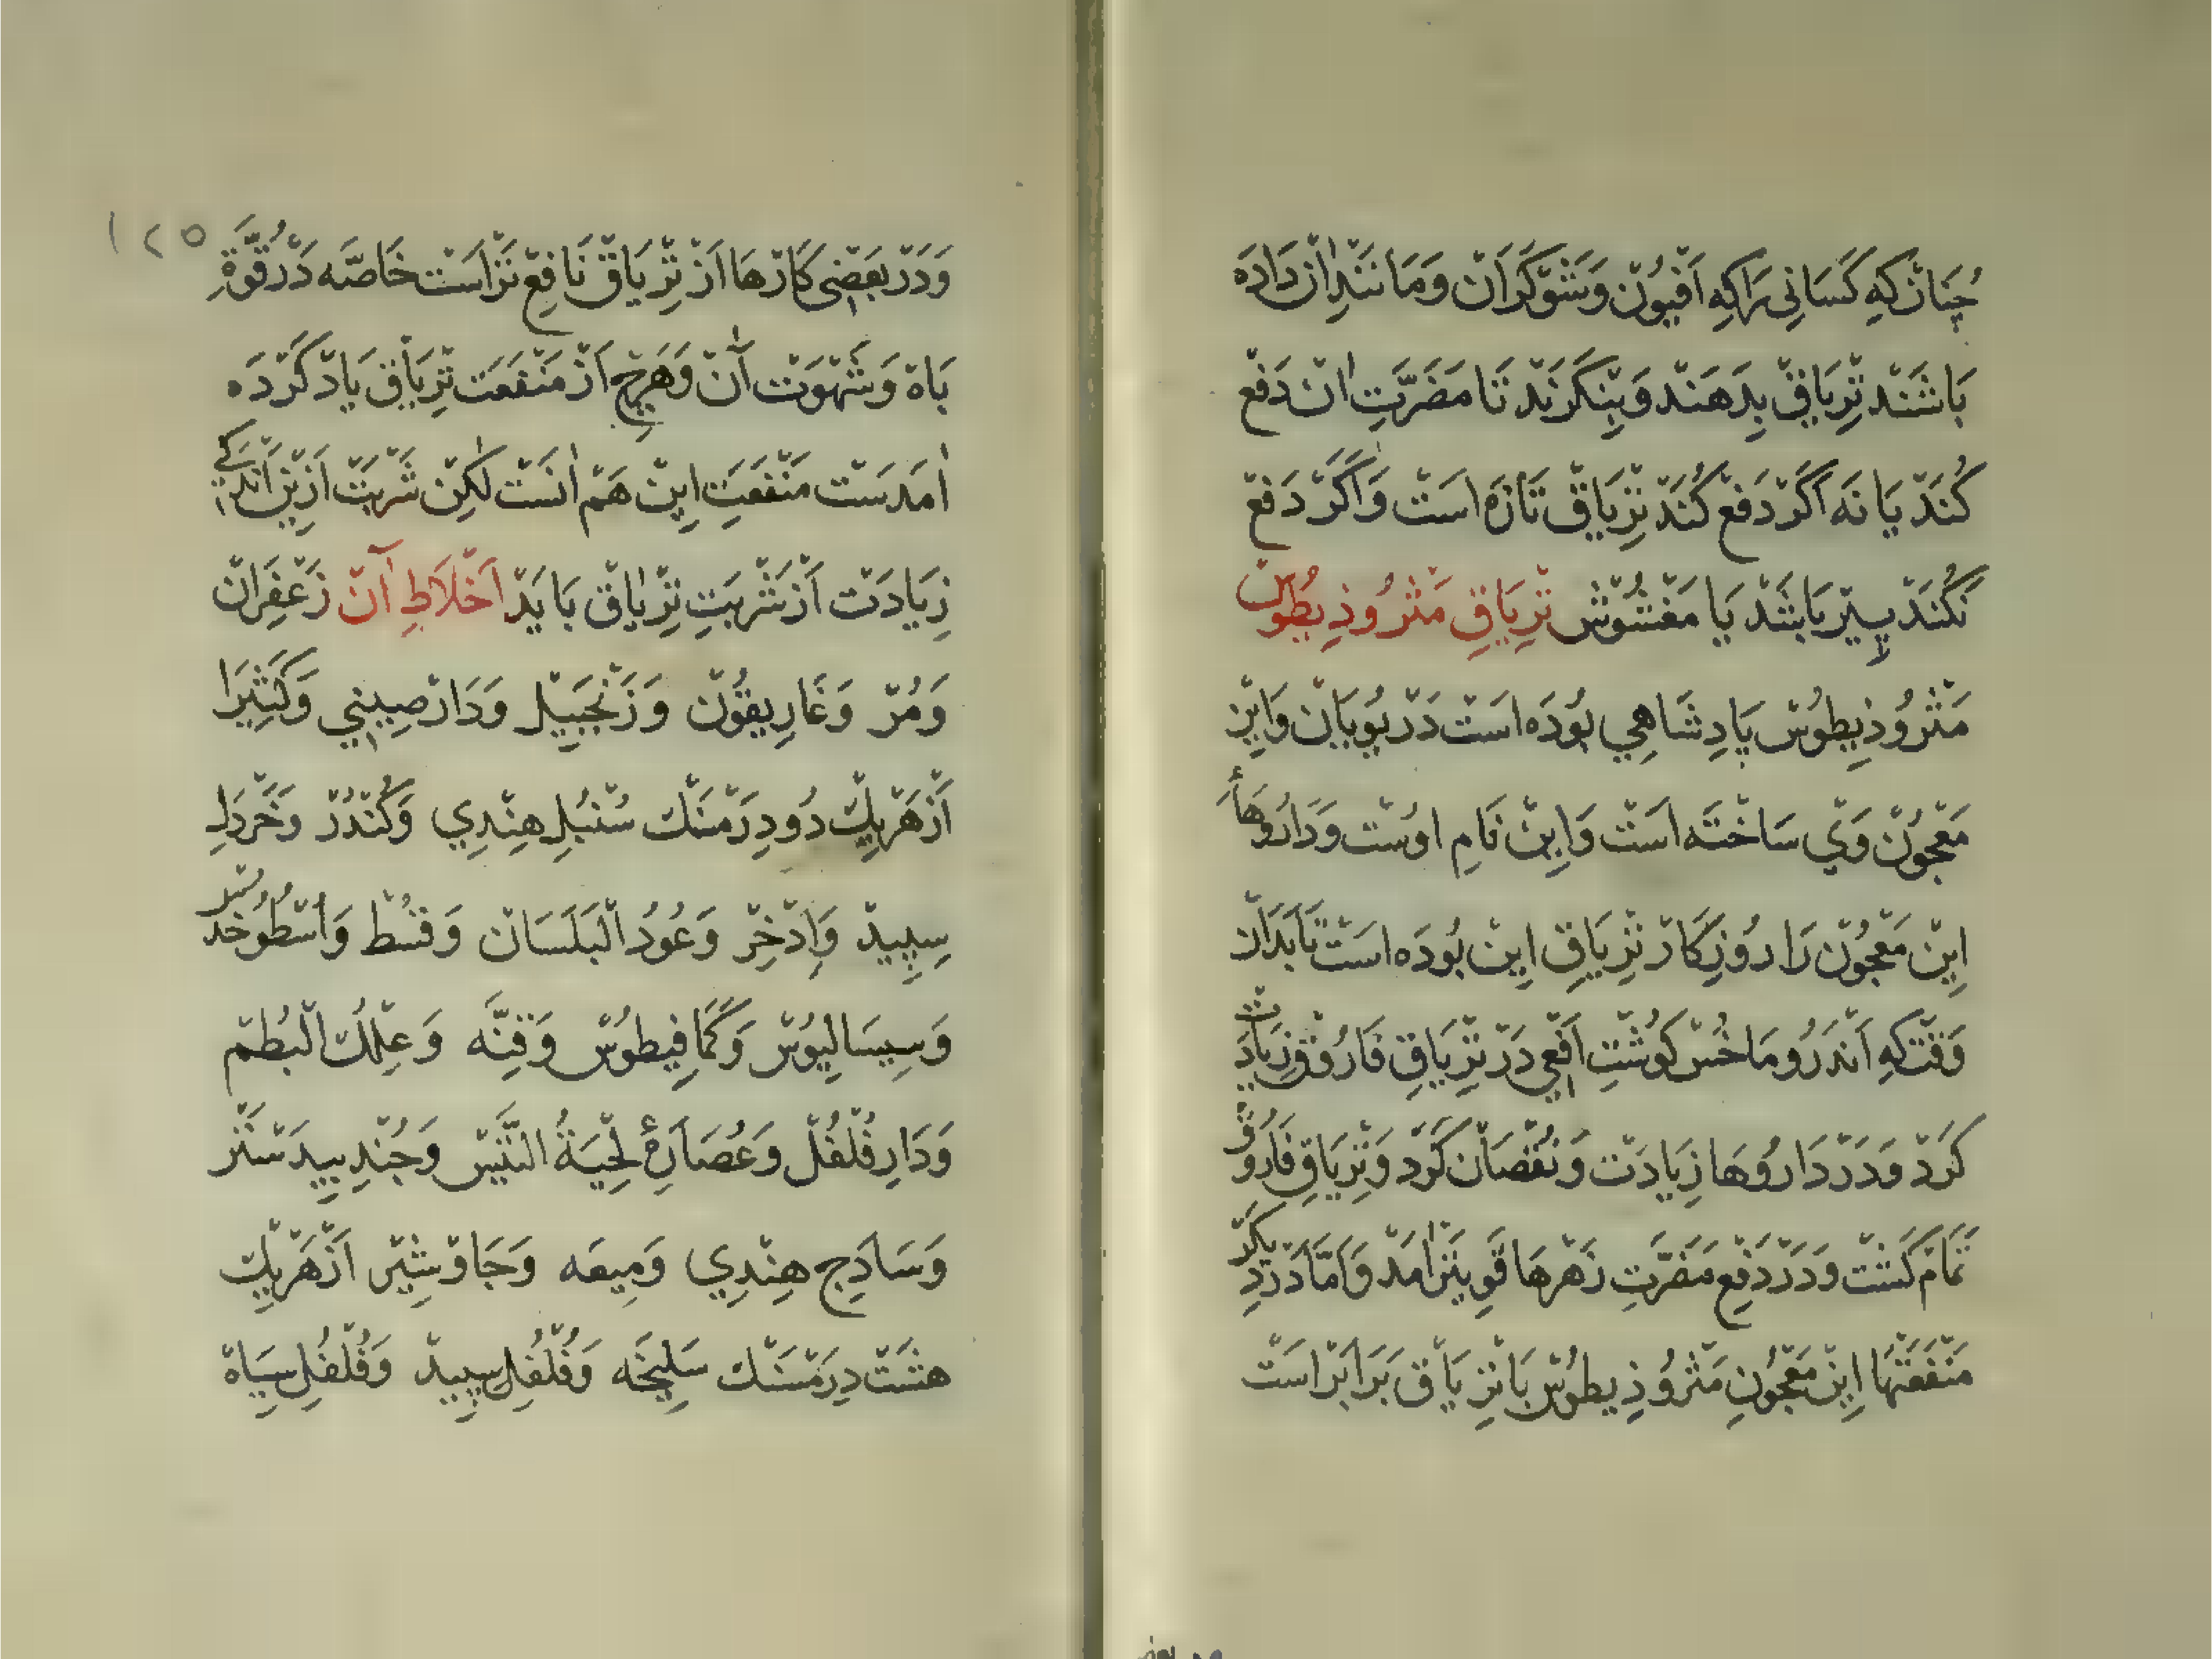 چُنَانْ کِهِ کَسَانِی رَا کِهِ اَفْیُونْ وَشَوْکَرَانْ وَمَانَنْدِ اٰنْ دَادَه
بَاشَنْد تِرْیَاقْ بِدَهَنْد وَبِنِکَرَنْد تَا مَضَرَّتِ اٰنْ دَفْع
کُنَدْ یَا نَه اَکَرْ دَفْع کُنَدْ تِرْیَاقْ تَازَه اسَتْ وَاَکَرْ دَفْع
نَکُنَدْ پِیرْ بَاشَدْ یَا مَغْشُوشْ تِرْیَاقِ مَثْرُوذِیطُوسْ
مَثْرُوذِیطُوسْ پَادِشَاهِی بُودَه اسَتْ دَرْ یُونَانْ وَاِینْ
مَعْجُونْ وَیْ سَاخْتَه اسَتْ وَاِینْ نَامِ اوُسْت وَدَارُوهَاءِ
اِینْ مَعْجُونْ رَا رُوزِکَارْ تِرْیَاقْ اِینْ بُودَه اسَتْ تَا بَدَانْ
وَقْتْ کِهِ اَنْدَرُومَاخُسْ کُوشْتِ اَفْعِی دَرْ تِرْیَاقِ فَارُوقْ زِیَادَتْ
کَرْد وَدَرْ دَارُوهَا زِیَادَتْ وَنُقْصَانْ کَرْد وَتِرْیَاقِ فَارُوقْ
تَمَامْ کَشْت وَدَرْ دَفْعِ مَضَرَّتِ زَهْرهَا قَوِیتَرْ اٰمَدْ وَاَمَّا دَرْ دِیکَرْ
مَنْفَعَتْهَا اِینْ مَعْجُونِ مَثْرُوذِیطُوسْ بَا تِرْیَاقْ بَرَابَرْ اسَتْ
۱۲۵
وَدَرْ بَعْضِی کَارْهَا اَزْ تِرْیَاقْ نَافِعْ تَرْ اسَتْ خَاصَّه دَرْ قُوَّةِ
بَاهْ وَشَهْوَتِ آنْ وَهَرْچِ اَزْ مَنْفَعَتِ تِرْیَاقْ یَادْ کَرْدَه
اٰمَدَسَتْ مَنْفَعَتِ اِینْ هَمْ اٰنَسْتْ لٰکِنْ شَرْبَتْ اَزِینْ اَنْدَکِی
زِیَادَتْ اَزْ شَرْبَتِ تِرْیَاقْ بَایَدْ اَخْلَاطِ آنْ زَعْفَرَانْ
وَمُرّ وَغَارِیقُونْ وَزَنْجَبِیلْ وَدَارْصِینِی وَکَثِیرَا
اَزْ هَرْیِکْ دُو دِرَمْسَنْک سُنْبُلِ هِنْدِی وَکُنْدُرْ وَخَرْدَلِ
سِپِیدْ وَاِذْخِرْ وَعُودُ الْبَلَسَانْ وَقُسْطْ وَاُسْطُوخُدُسْ
وَسِیسَالِیُوسْ وَکَمَافِیطُوسْ وَقِنَّه وَعِلْكُ الْبُطْم
وَدَارِفُلْفُلْ وَعُصَارَهٔ لِحْیَةُ التَّیْسْ وَجُنْدِبِیدَسْتَرْ
وَسَاذَجِ هِنْدِی وَمِیعَه وَجَاوْشِیرْ اَزْ هَرْیِکْ
هشَتْ دِرَمْسَنْک سَلِیخَه وَفُلْفُلِ سِپِیدْ وَفُلْفُلِ سِیَاهْ